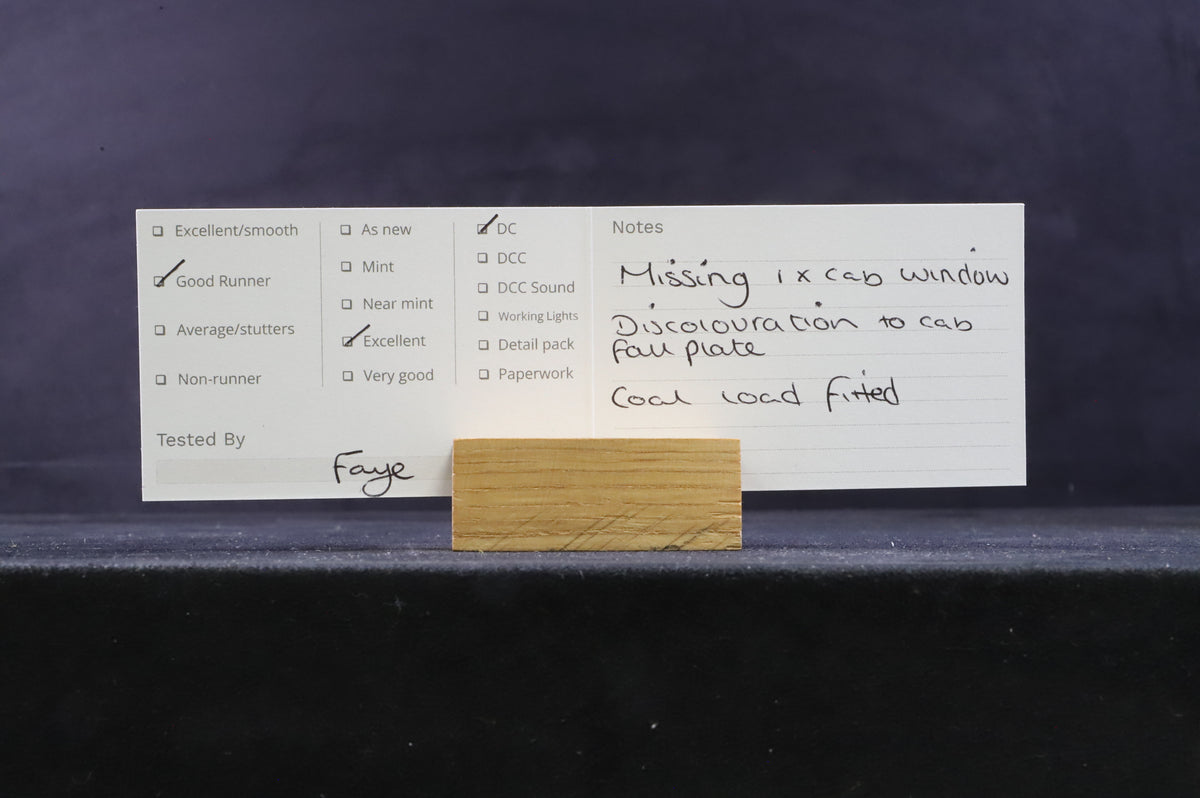 Excellent/smooth
Good Runner
Average/stutters
Non-runner
Tested By
Faye
As new
Mint
Near mint
Excellent
Very good
DC
DCC
DCC Sound
Working Lights
Detail pack
Paperwork
Notes
Missing 1 x cab window
Discolouration to cab
fall plate
Coal load fitted